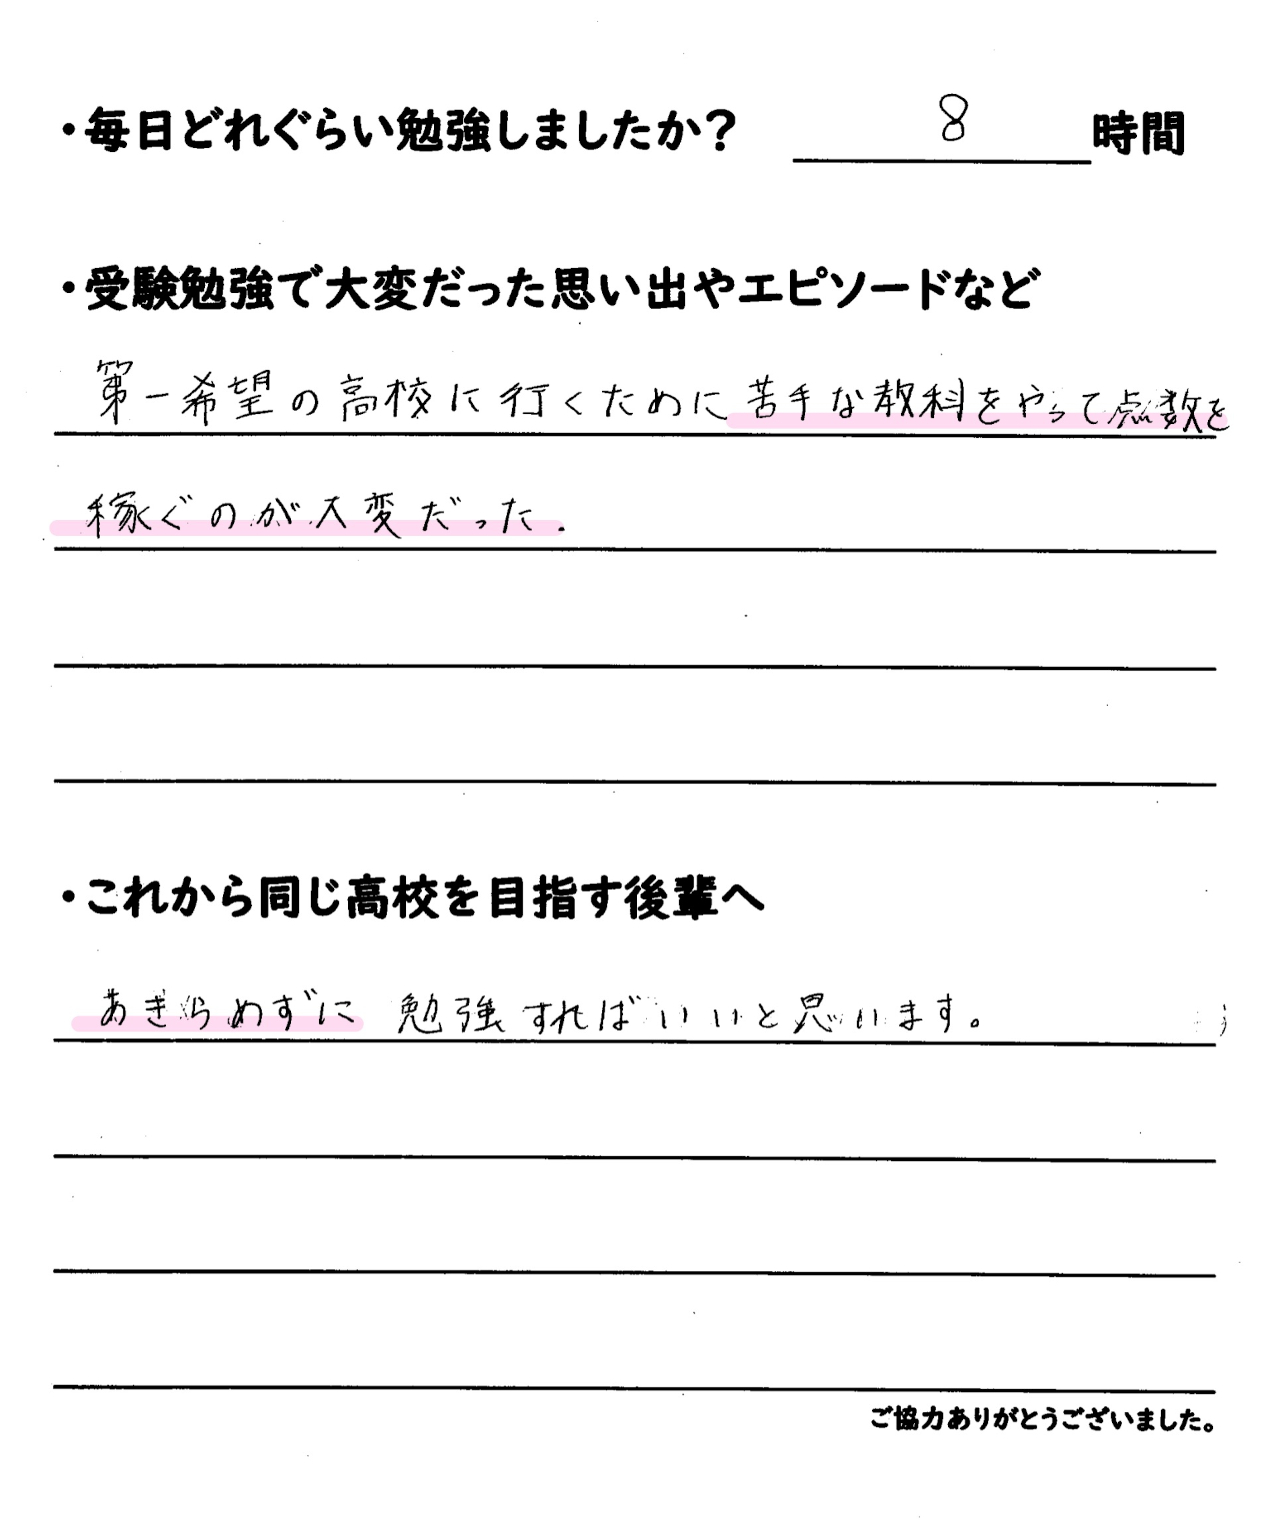 ・毎日どれぐらい勉強しましたか? 8 時間
・受験勉強で大変だった思い出やエピソードなど
第一希望の高校に行くために苦手な教科をやって点数を
稼ぐのが大変だった.
・これから同じ高校を目指す後輩へ
あきらめずに勉強すればいいと思います。
ご協力ありがとうございました。